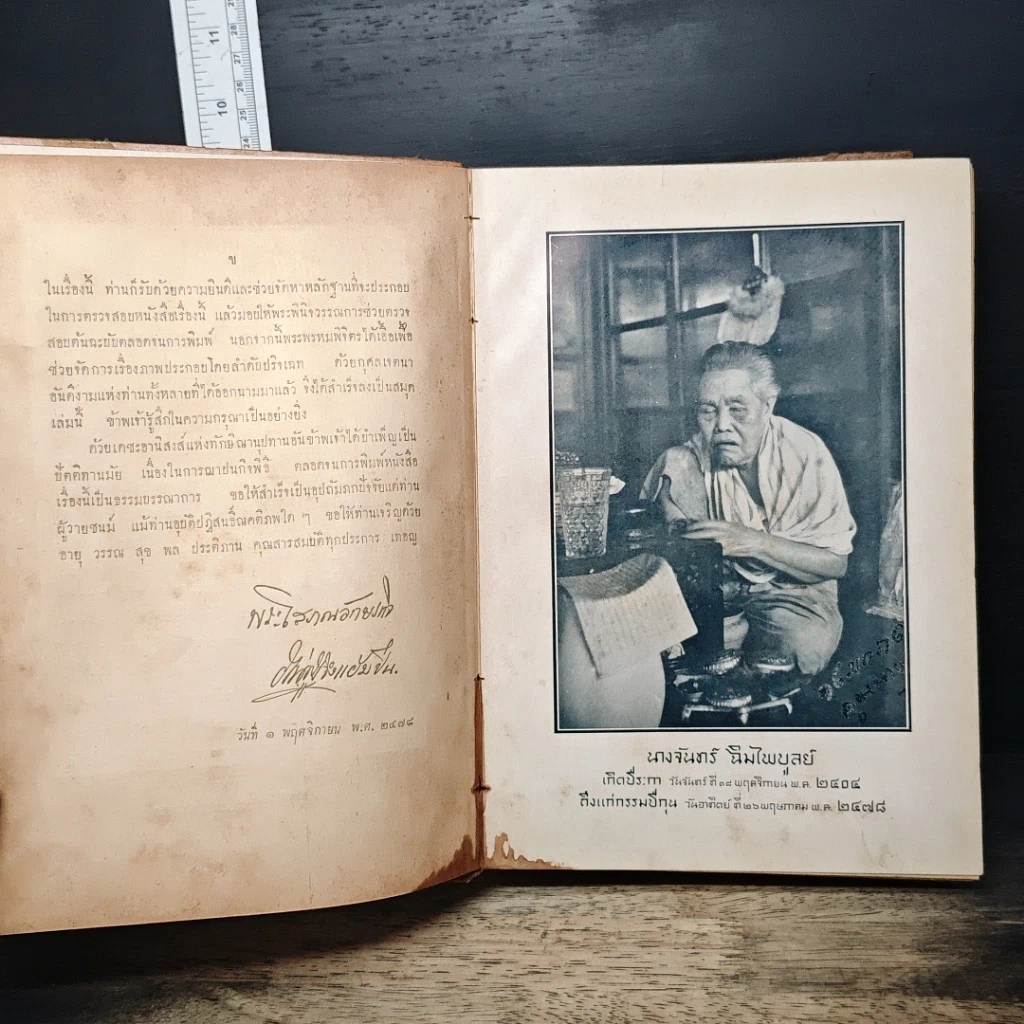 ข
ในเรื่องนี้ ท่านก็รับด้วยความยินดีและช่วยจัดหาหลักฐานที่จะประกอบ
ในการตรวจสอบหนังสือเรื่องนี้ แล้วมอบให้พระพินิจวรรณการช่วยตรวจ
สอบต้นฉะบับตลอดจนการพิมพ์ นอกจากนี้พระพรหมพิจิตรได้เอื้อเฟื้อ
ช่วยจัดการเรื่องภาพประกอบโดยลำดับปริจเฉท ด้วยกุศลเจตนา
อันดีงามแห่งท่านทั้งหลายที่ได้ออกนามมาแล้ว จึงได้สำเร็จลงเป็นสมุด
เล่มนี้ ข้าพเจ้ารู้สึกในความกรุณาเป็นอย่างยิ่ง
ด้วยเดชะอานิสงส์แห่งทักษิณานุปทานอันข้าพเจ้าได้บำเพ็ญเป็น
ปัตติทานมัย เนื่องในการฌาปนกิจพิธี ตลอดจนการพิมพ์หนังสือ
เรื่องนี้เป็นธรรมบรรณาการ ขอให้สำเร็จเป็นอุปถัมภกปัจจัยแด่ท่าน
ผู้วายชนม์ แม้ท่านอุบัติปฏิสนธิ์ณคติภพใด ๆ ขอให้ท่านเจริญด้วย
อายุ วรรณ สุข พล ประติภาน คุณสารสมบัติทุกประการ เทอญ
พระโสภณอักษรกิจ
วันที่ ๑ พฤศจิกายน พ.ศ. ๒๔๗๘
นางจันทร์ ฉิมไพบูลย์
เกิดปีระกา วันจันทร์ ที่ ๑๘ พฤศจิกายน พ.ศ. ๒๔๐๔
ถึงแก่กรรมปีกุน วันอาทิตย์ ที่ ๒๖ พฤษภาคม พ.ศ. ๒๔๗๘
10
11
24
25
26
27
28